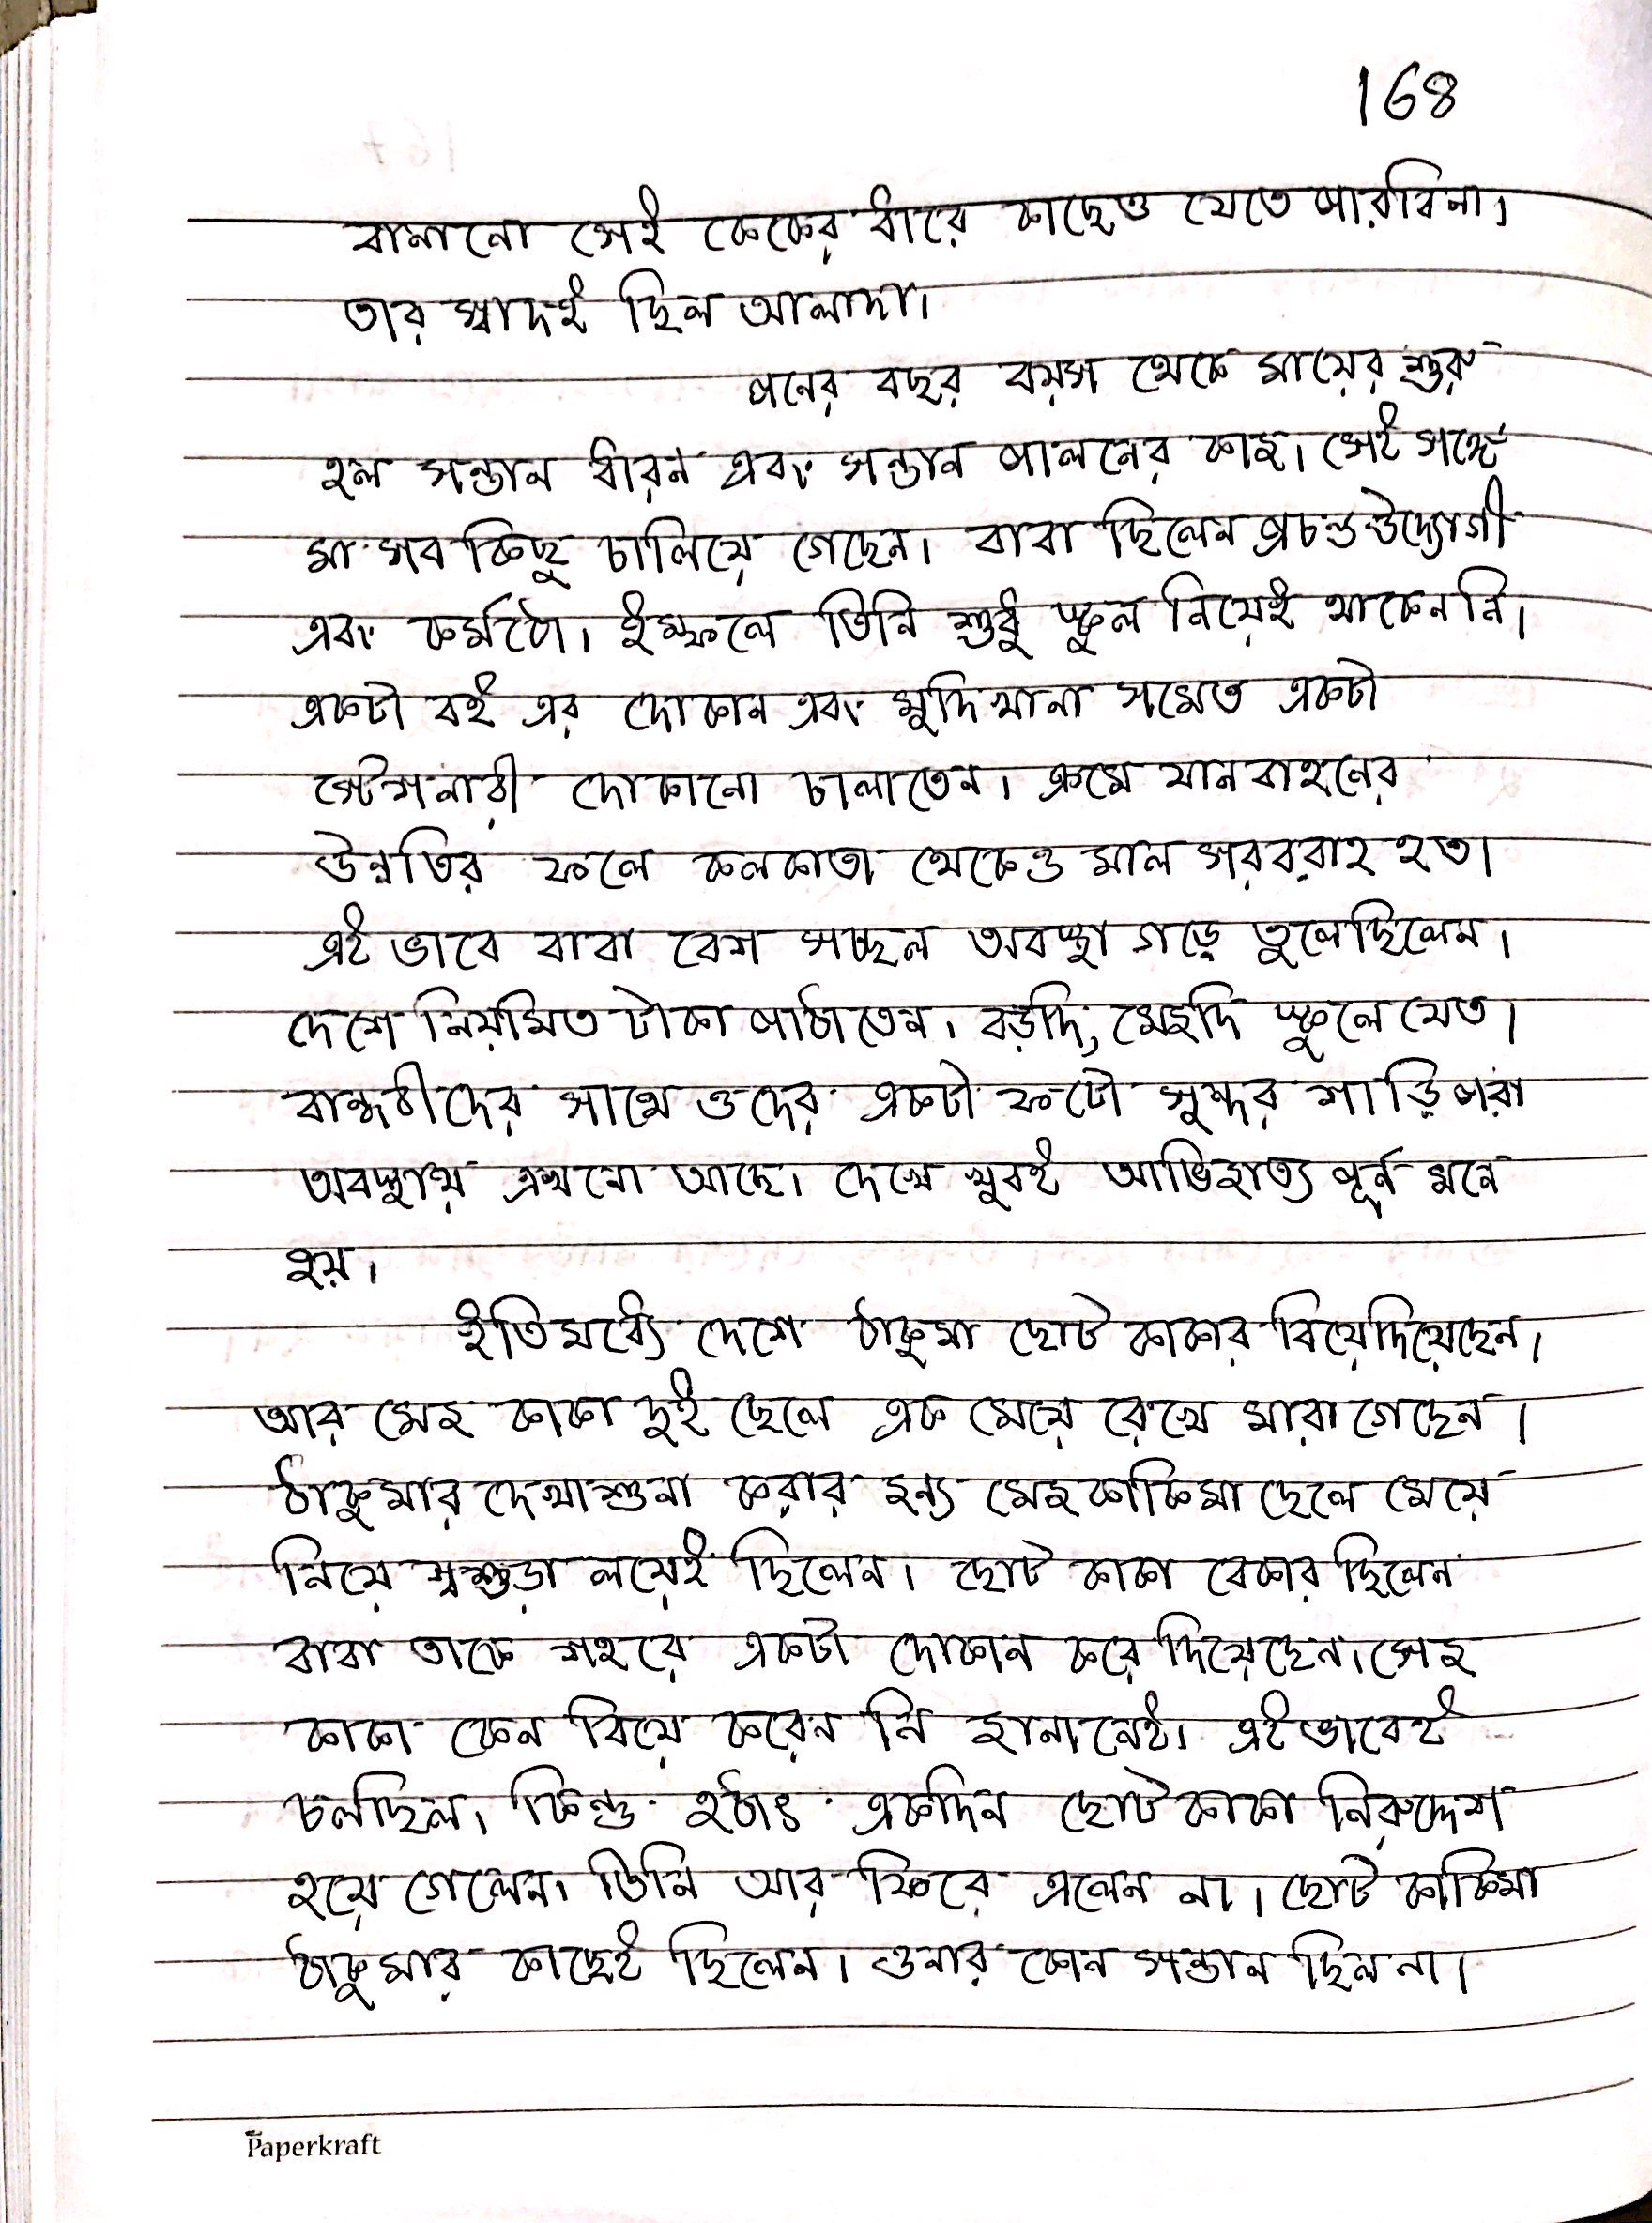 168
বানানো সেই কেকের ধারে কাছেও যেতে পারবিনা।
তার স্বাদই ছিল আলাদা।
পনের বছর বয়স থেকে মায়ের শুরু
হল সন্তান ধারন এবং সন্তান পালনের কাজ। সেই সঙ্গে
মা সব কিছু চালিয়ে গেছেন। বাবা ছিলেন প্রচন্ড উদ্যোগী
এবং কর্মঠো। ইম্ফলে তিনি শুধু স্কুল নিয়েই থাকেন নি।
একটা বই এর দোকান এবং মুদিখানা সমেত একটা
স্টেসনারী দোকানো চালাতেন। ক্রমে যানবাহনের
উন্নতির ফলে কলকাতা থেকেও মাল সরবরাহ হত।
এই ভাবে বাবা বেশ সচ্ছল অবস্থা গড়ে তুলেছিলেন।
দেশে নিয়মিত টাকা পাঠাতেন। বড়দি, মেজদি স্কুলে যেত।
বান্ধবীদের সাথে ওদের একটা ফটো সুন্দর শাড়ি পরা
অবস্থায় এখনো আছে। দেখে খুবই আভিজাত্য পূর্ন মনে
হয়।
ইতিমধ্যে দেশে ঠাকুমা ছোট কাকার বিয়ে দিয়েছেন।
আর মেজ কাকা দুই ছেলে এক মেয়ে রেখে মারা গেছেন।
ঠাকুমার দেখাশুনা করার জন্য মেজকাকিমা ছেলে মেয়ে
নিয়ে শ্বশুড়া লয়েই ছিলেন। ছোট কাকা বেকার ছিলেন
বাবা তাকে শহরে একটা দোকান করে দিয়েছেন। সেজ
কাকা কেন বিয়ে করেন নি জানা নেই। এই ভাবেই
চলছিল। কিন্তু হঠাৎ একদিন ছোট কাকা নিরুদ্দেশ
হয়ে গেলেন। তিনি আর ফিরে এলেন না। ছোট কাকিমা
ঠাকুমার কাছেই ছিলেন। ওনার কোন সন্তান ছিল না।
Paperkraft